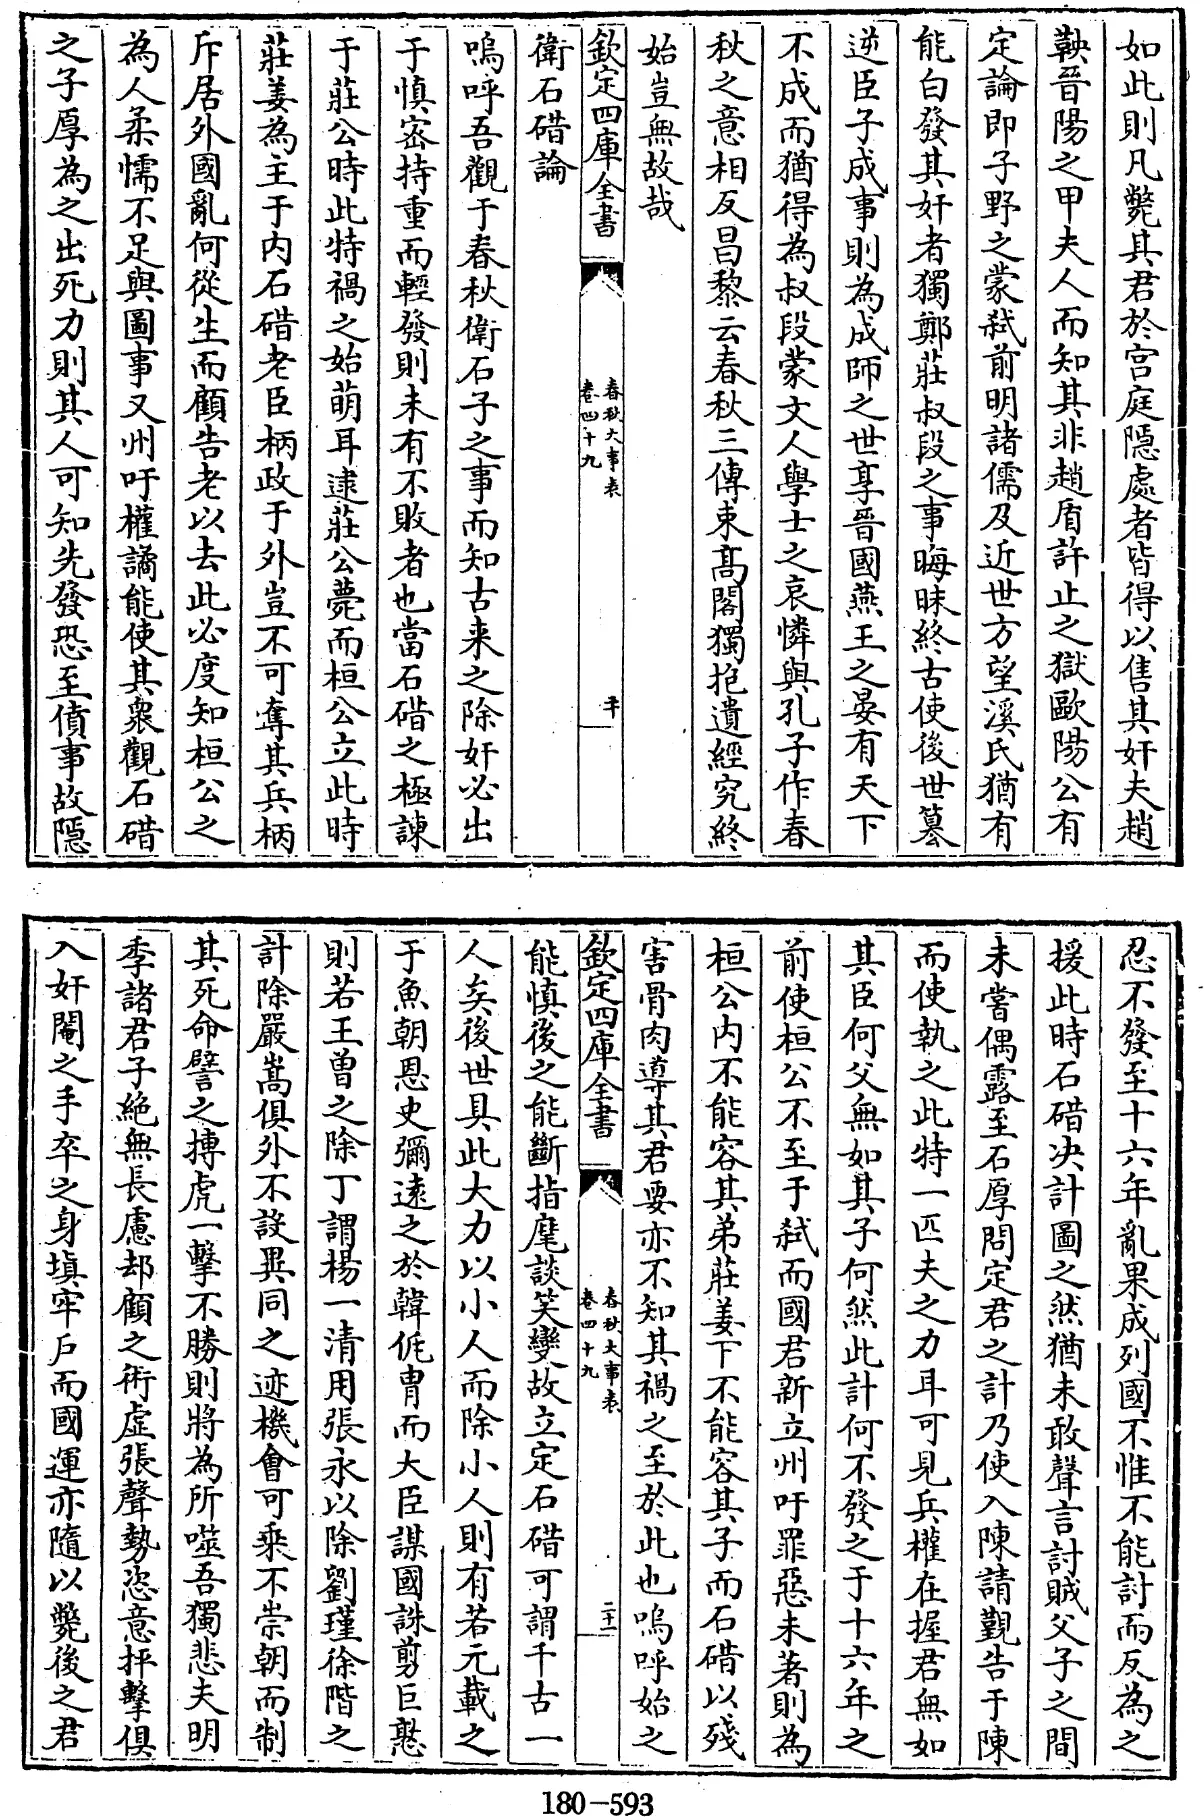 如此則凡斃其君於宫庭隠處者皆得以售其奸夫趙
鞅晉陽之甲夫人而知其非趙盾許止之獄歐陽公有
定論即子野之蒙弑前明諸儒及近世方望溪氏猶有
能白發其奸者獨鄭莊叔段之事晦昧終古使後世簒
逆臣子成事則為成師之世享晉國燕王之晏有天下
不成而猶得為叔段蒙文人學士之哀憐與孔子作春
秋之意相反昌黎云春秋三傳束髙閣獨抱遺經究終
始豈無故哉
欽定四庫全書
春秋大事表
卷四十九
衛石碏論
嗚呼吾觀于春秋衛石子之事而知古来之除奸必出
于慎宻持重而輕發則未有不敗者也當石碏之極諫
于莊公時此特禍之始萌耳逮莊公薨而桓公立此時
莊姜為主于内石碏老臣柄政于外豈不可奪其兵柄
斥居外國亂何從生而顧告老以去此必度知桓公之
為人柔懦不足與圖事又州吁權譎能使其衆觀石碏
之子厚為之出死力則其人可知先發恐至僨事故隠
忍不發至十六年亂果成列國不惟不能討而反為之
援此時石碏决計圖之然猶未敢聲言討賊父子之間
未嘗偶露至石厚問定君之計乃使入陳請覲告于陳
而使執之此特一匹夫之力耳可見兵權在握君無如
其臣何父無如其子何然此計何不發之于十六年之
前使桓公不至于弑而國君新立州吁罪惡未著則為
桓公内不能容其弟莊姜下不能容其子而石碏以殘
害骨肉導其君要亦不知其禍之至於此也嗚呼始之
欽定四庫全書
春秋大事表
卷四十九
二十一
能慎後之能斷指麾談笑變故立定石碏可謂千古一
人矣後世具此大力以小人而除小人則有若元載之
于魚朝恩史彌逺之於韓侂胄而大臣謀國誅剪巨憝
則若王曽之除丁謂楊一清用張永以除劉瑾徐階之
計除嚴嵩俱外不設異同之迹機會可乘不崇朝而制
其死命譬之搏虎一擊不勝則將為所噬吾獨悲夫明
季諸君子絶無長慮却顧之術虚張聲勢恣意抨擊俱
入奸閹之手卒之身填牢戶而國運亦隨以斃後之君
180-593